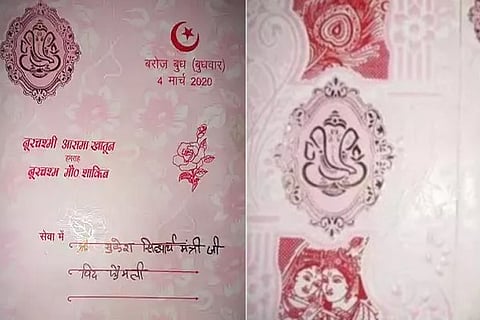 बरोज़ बुध (बुधवार)
4 मार्च 2020
नूरचश्मी आसमा खातून
हमराह
नूरचश्म मौ० शाकिब
सेवा में
श्री मुकेश सिद्धार्थ मंत्री जी
विद फैमली